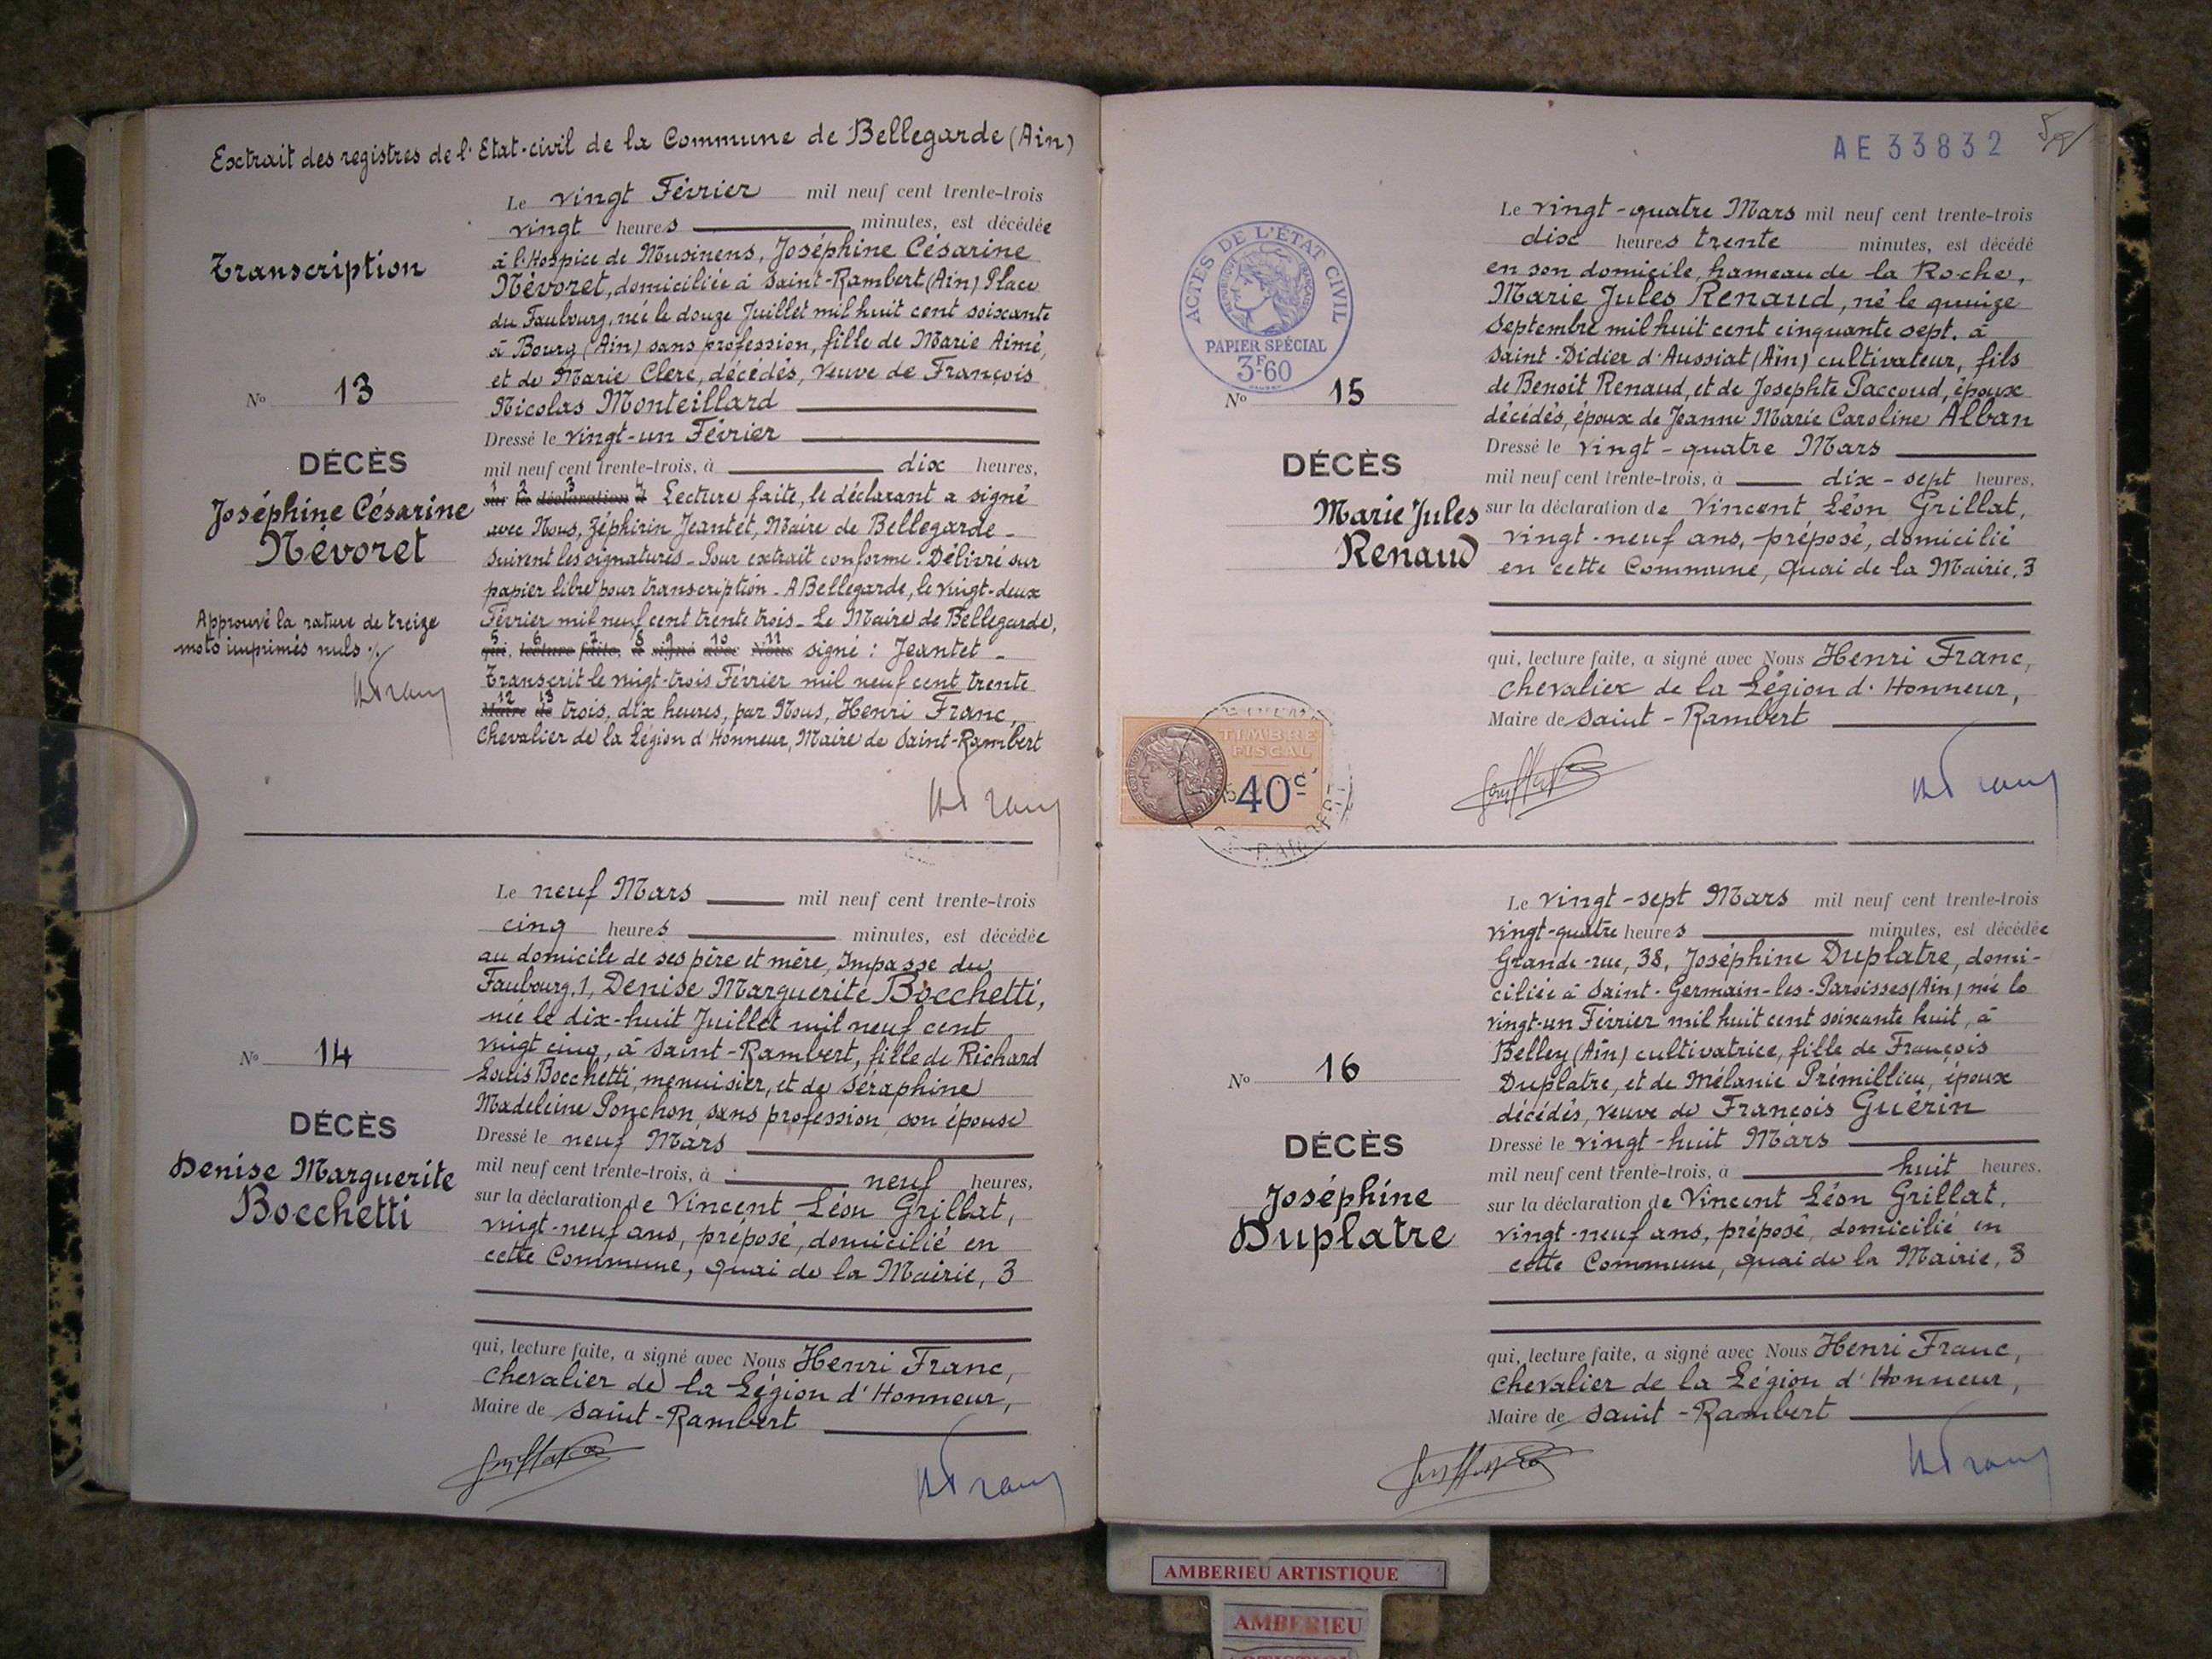 Extrait des registres de l'Etat-civil de la Commune de Bellegarde (Ain)
Transcription
N° 13
DÉCÈS
Joséphine Césarine
Névoret
Approuvé la rature de treize
mots imprimés nuls ./.
Le vingt Février mil neuf cent trente-trois
vingt heures minutes, est décédée
à l'Hospice de Musinens, Joséphine Césarine
Névoret, domiciliée à Saint-Rambert (Ain) Place
du Faubourg, née le douze Juillet mil huit cent soixante
à Bourg (Ain) sans profession, fille de Marie Aimé,
et de Marie Clere, décédés, veuve de François
Nicolas Monteillard
Dressé le vingt-un Février
mil neuf cent trente-trois, à dix heures,
1 2 3 4
sur la déclaration d Lecture faite, le déclarant a signé
avec Nous, Zéphirin Jeantet, Maire de Bellegarde -
Suivent les signatures - Pour extrait conforme. Délivré sur
papier libre pour transcription - A Bellegarde, le vingt-deux
Février mil neuf cent trente trois - Le Maire de Bellegarde,
5 6 7 8 9 10 11
qui, lecture faite, a signé avec Nous signé : Jeantet -
Transcrit le vingt-trois Février mil neuf cent trente
12 13
Maire de trois, dix heures, par Nous, Henri Franc,
Chevalier de la Légion d'Honneur, Maire de Saint-Rambert
N° 14
DÉCÈS
Denise Marguerite
Bocchetti
Le neuf Mars mil neuf cent trente-trois
cinq heures minutes, est décédée
au domicile de ses père et mère, Impasse du
Faubourg, 1, Denise Marguerite Bocchetti,
née le dix-huit Juillet mil neuf cent
vingt cinq, à Saint-Rambert, fille de Richard
Louis Bocchetti, menuisier, et de Séraphine
Madeleine Ponchon, sans profession, son épouse
Dressé le neuf Mars
mil neuf cent trente-trois, à neuf heures,
sur la déclaration de Vincent Léon Grillat,
vingt-neuf ans, préposé, domicilié en
cette Commune, quai de la Mairie, 3
qui, lecture faite, a signé avec Nous Henri Franc,
Chevalier de la Légion d'Honneur,
Maire de Saint-Rambert
AE 33832
ACTES DE L'ÉTAT CIVIL
PAPIER SPÉCIAL
3F60
N° 15
DÉCÈS
Marie Jules
Renaud
Le vingt-quatre Mars mil neuf cent trente-trois
dix heures trente minutes, est décédé
en son domicile, hameau de la Roche,
Marie Jules Renaud, né le quinze
Septembre mil huit cent cinquante sept, à
Saint-Didier d'Aussiat (Ain) cultivateur, fils
de Benoit Renaud, et de Josephte Paccoud, époux
décédés, époux de Jeanne Marie Caroline Alban
Dressé le vingt-quatre Mars
mil neuf cent trente-trois, à dix-sept heures,
sur la déclaration de Vincent Léon Grillat,
vingt-neuf ans, préposé, domicilié
en cette Commune, quai de la Mairie, 3
qui, lecture faite, a signé avec Nous Henri Franc,
Chevalier de la Légion d'Honneur,
Maire de Saint-Rambert
TIMBRE
FISCAL
40c
N° 16
DÉCÈS
Joséphine
Duplatre
Le vingt-sept Mars mil neuf cent trente-trois
vingt-quatre heures minutes, est décédée
Grande-rue, 38, Joséphine Duplatre, domi-
ciliée à Saint-Germain-les-Paroisses (Ain) née le
vingt-un Février mil huit cent soixante huit, à
Belley (Ain) cultivatrice, fille de François
Duplatre, et de Mélanie Prémillieu, époux
décédés, veuve de François Guérin
Dressé le vingt-huit Mars
mil neuf cent trente-trois, à huit heures,
sur la déclaration de Vincent Léon Grillat,
vingt-neuf ans, préposé, domicilié en
cette Commune, quai de la Mairie, 3
qui, lecture faite, a signé avec Nous Henri Franc,
Chevalier de la Légion d'Honneur,
Maire de Saint-Rambert
AMBERIEU ARTISTIQUE
AMBERIEU
ARTISTIQUE